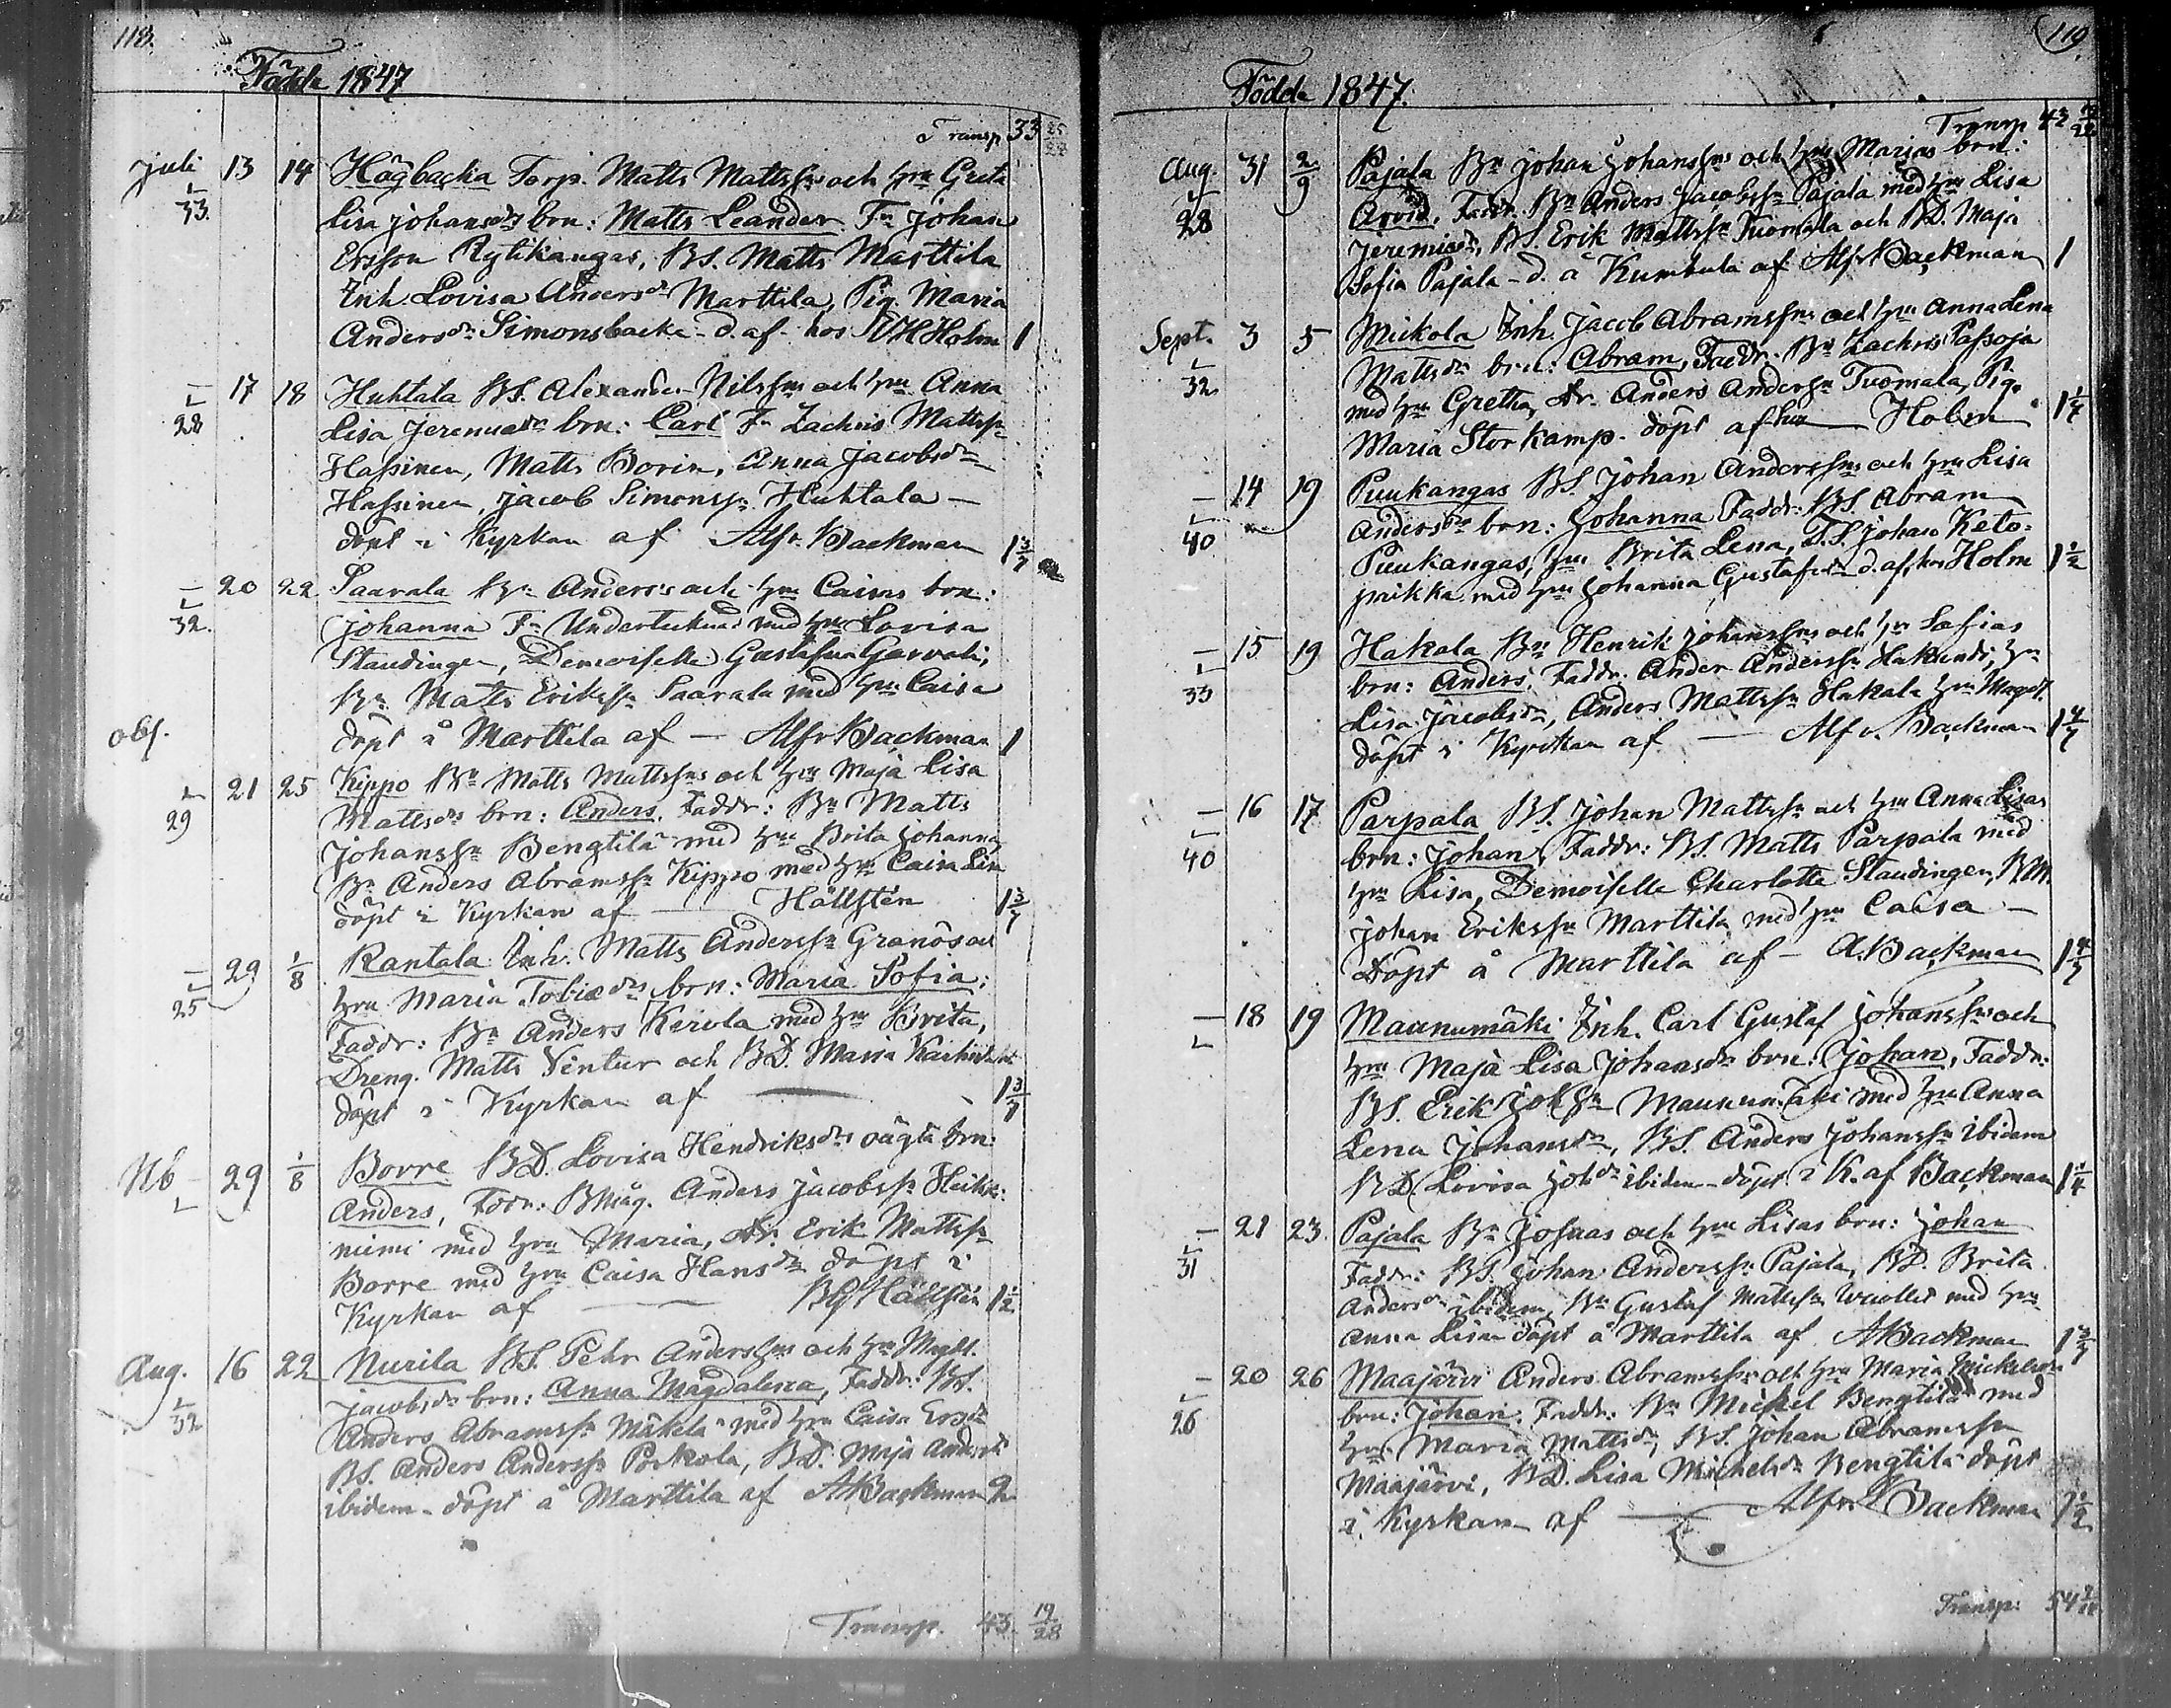 118.
Födde 1847
Transp 33 25/28
Juli 13 14 Högbacka Torp. Matts Mattsſns och hru Greta
33. Lisa Johansdrs brn: Matts Leander Fr Johan
Ersson Rytikangas, BS. Matts Marttila
Inh. Lovisa Andersdr Marttila, Pig. Maria
Andersdr Simonsbacka - d. af hos Holm 1
17 18 Huhtala BS. Alexander Nilsſns och hru Anna
28 Lisa Jeremiædrs brn: Carl Fr Zachris Mattsſn
Haſsinen, Matts Borin, Anna Jacobsdr
Haſsinen, Jacob Simonsſn Huhtala —
döpt i Kyrkan af Alfr. Backman 1 3/7
20 22 Saarala Bn Anders's och hru Caisas brn:
32. Johanna Fr Undertecknad med hru Lovisa
Standinger, Demoiselle Gustafva
Bn Matts Eriksſn Saarala med hru Caisa
döpt å Marttila af — Alfr Backman 1
obs.
21 25 Kippo Bn Matts Mattsſns och hru Maja Lisa
29 Mattsdrs brn: Anders. Faddr: Bn Matts
Johansſn Bengtilä med hru Brita Johanna
Bn Anders Abramsſn Kippo med hru Caisa Lisa
döpt i Kyrkan af — Hällſtén 1 3/7
29 1/8 Rantala Inh. Matts Andersſn Granös och
25 hru Maria Tobiædrs brn: Maria Sofia;
Faddr: Bn Anders Kerola med hru Brita,
Dreng. Matts Ventur och BD. Maria
döpt i Kyrkan af — 1 3/7
Nb — 29 1/8 Borre BD. Lovisa Hendriksdrs oägta brn:
Anders, Fddr: Bmåg. Anders Jacobsſn Heikki-
niemi med hru Maria, Dr. Erik Mattsſn
Borre med hru Caisa Hansdr döpt i
Kyrkan af — Hällſtén 1 1/2
Aug. 16 22 Nurila BS. Pehr Andersſns och hru Magdl.
32 Jacobsdrs brn: Anna Magdalena, Faddr: BS.
Anders Abramsſn Mäkelä med hru Caisa Ersdr
BS. Anders Andersſn Porkola, BD. Maja Andersdr
ibidem - döpt å Marttila af ABackman 2
Transp. 43. 19/28
119.
Födde 1847.
Transp 43 19/28
Aug. 31 2/9 Pajala Bn Johan Johansſns och hru Marias brn:
28 Arvid. Faddr. Bn Anders Jacobsſn Pajala med hru Lisa
Jeremiædr, BS. Erik Mattsſn Tuomala och BD. Maja
Sofia Pajala - d. å Kumbula af Alfr Backman 1
Sept. 3 5 Mickola Inh. Jacob Abramsſns och hru Anna Lena
32. Mattsdrs brn: Abram, Faddr. Bn Zachris Paſsoja
med hru Gretha, Dr. Anders Andersſn Tuomala, Pig.
Maria Storkamp. döpt af hos Holm 1 1/7
14 19 Puukangas BS. Johan Andersſns och hru Lisa
40 Andersdrs brn: Johanna Faddr: BS. Abram
Puukangas, hru Brita Lena, T.S. Johan Keto-
paikka med hru Johanna Gustafsdr d. af hr Holm 1 1/2
15 19 Hakala Bn Henrik Johansſns och hru Sofias
33 brn: Anders, Faddr. Ander Andersſn hru
Lisa Jacobsdr, Anders Mattsſn Hakala hru Magdl.
döpt i Kyrkan af — Alfr. Backman 1 4/7
16 17 Parpala BS. Johan Mattsſn och hru Anna Lisas
40 brn: Johan, Faddr: BS. Matts Parpala med
hru Lisa, Demoiselle Charlotte Standinger, BM.
Johan Eriksſn Marttila med hru Caisa —
Döpt å Marttila af — A.Backman 1 4/7
18 19 Maunumäki Inh. Carl Gustaf Johansſns och
hru Maja Lisa Johansdrs brn: Johan, Faddr:
BS. Erik Johſn Maunumäki med hru Anna
Lena Johansdr, BS. Anders Johansſn ibidem
BD. Lovisa Johdr ibidem - döpt i K. af Backman 1 1/4
21 23. Pajala Bn Josuas och hru Lisas brn: Johan
31 Faddr: BS. Johan Andersſn Pajala, BD. Brita
Andersdr ibidem, Bn Gustaf Mattsſn med hru
Anna Lisa döpt å Marttila af ABackman 1 3/7
20 26 Maajärvi Anders Abramsſns och hru Maria Mickelsdrs
26 brn: Johan. Faddr: Bn Mickel Bengtilä med
hru Maria Mattsdr, BS. Johan Abramsſn
Maajärvi, BD. Lisa Michelsdr Bengtilä döpt
i Kyrkan af — Alfr. Backman 1 1/2
Transp: 54